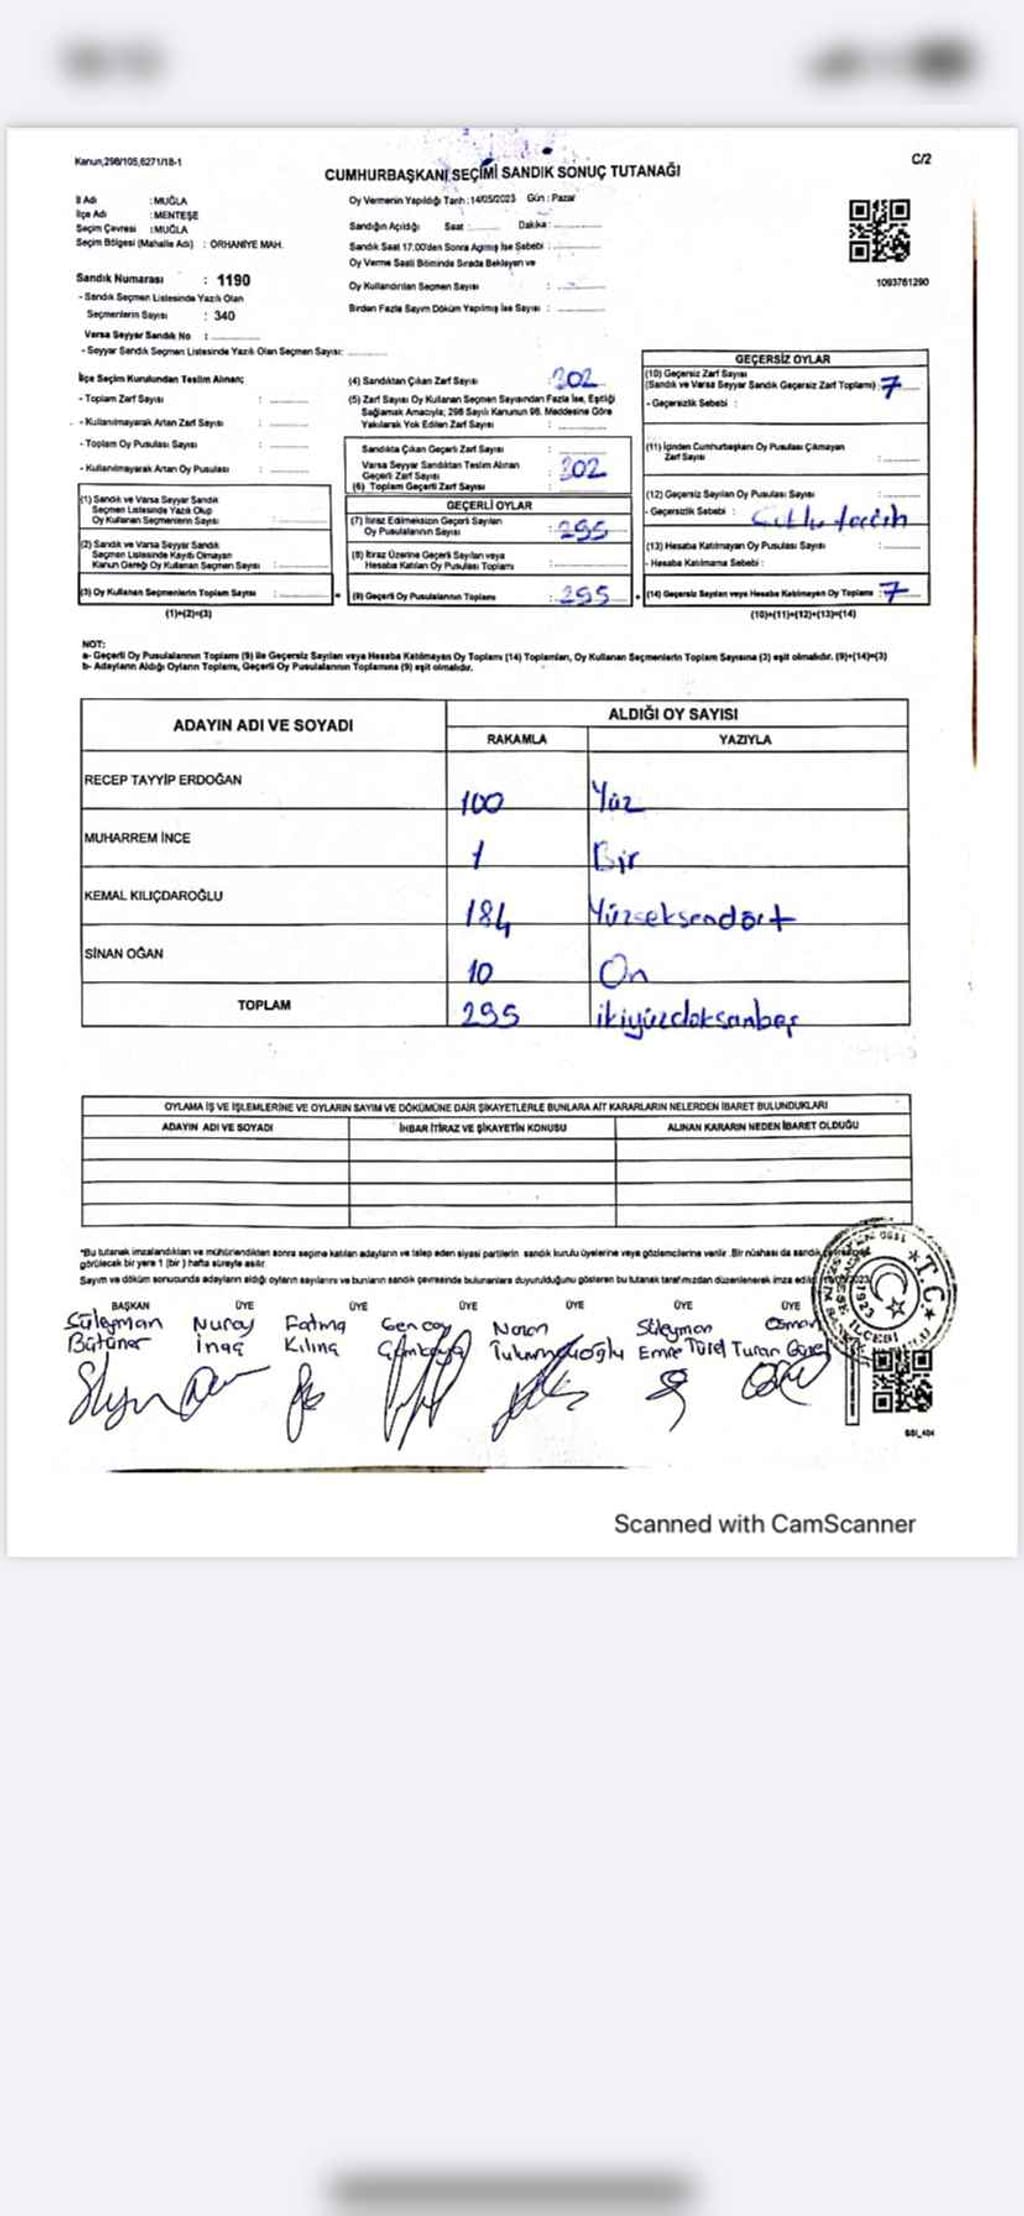 Kanun,298/105,6271/18-1
C/2
CUMHURBAŞKANI SEÇİMİ SANDIK SONUÇ TUTANAĞI
İl Adı :MUĞLA
İlçe Adı :MENTEŞE
Seçim Çevresi :MUĞLA
Seçim Bölgesi (Mahalle Adı) : ORHANİYE MAH.
Oy Vermenin Yapıldığı Tarih :14/05/2023 Gün : Pazar
Sandığın Açıldığı Saat : Dakika :
Sandık Saat 17.00'den Sonra Açılmış İse Sebebi :
Oy Verme Saati Bitiminde Sırada Bekleyen ve
Oy Kullandırılan Seçmen Sayısı :
Birden Fazla Sayım Döküm Yapılmış İse Sayısı :
1093761290
Sandık Numarası : 1190
- Sandık Seçmen Listesinde Yazılı Olan
Seçmenlerin Sayısı : 340
Varsa Seyyar Sandık No :
- Seyyar Sandık Seçmen Listesinde Yazılı Olan Seçmen Sayısı:
İlçe Seçim Kurulundan Teslim Alınan;
- Toplam Zarf Sayısı :
- Kullanılmayarak Artan Zarf Sayısı :
- Toplam Oy Pusulası Sayısı :
- Kullanılmayarak Artan Oy Pusulası :
(1) Sandık ve Varsa Seyyar Sandık
Seçmen Listesinde Yazılı Olup
Oy Kullanan Seçmenlerin Sayısı :
(2) Sandık ve Varsa Seyyar Sandık
Seçmen Listesinde Kayıtlı Olmayan
Kanun Gereği Oy Kullanan Seçmen Sayısı :
(3) Oy Kullanan Seçmenlerin Toplam Sayısı :
(1)+(2)=(3)
(4) Sandıktan Çıkan Zarf Sayısı : 302
(5) Zarf Sayısı Oy Kullanan Seçmen Sayısından Fazla İse, Eşitliği
Sağlamak Amacıyla; 298 Sayılı Kanunun 98. Maddesine Göre
Yakılarak Yok Edilen Zarf Sayısı :
Sandıkta Çıkan Geçerli Zarf Sayısı :
Varsa Seyyar Sandıktan Teslim Alınan
Geçerli Zarf Sayısı : 302
(6) Toplam Geçerli Zarf Sayısı
GEÇERLİ OYLAR
(7) İtiraz Edilmeksizin Geçerli Sayılan
Oy Pusulalarının Sayısı : 295
(8) İtiraz Üzerine Geçerli Sayılan veya
Hesaba Katılan Oy Pusulası Toplamı :
(9) Geçerli Oy Pusulalarının Toplamı : 295
GEÇERSİZ OYLAR
(10) Geçersiz Zarf Sayısı
(Sandık ve Varsa Seyyar Sandık Geçersiz Zarf Toplamı) : 7
- Geçersizlik Sebebi :
(11) İçinden Cumhurbaşkanı Oy Pusulası Çıkmayan
Zarf Sayısı :
(12) Geçersiz Sayılan Oy Pusulası Sayısı :
- Geçersizlik Sebebi :
(13) Hesaba Katılmayan Oy Pusulası Sayısı :
- Hesaba Katılmama Sebebi :
(14) Geçersiz Sayılan veya Hesaba Katılmayan Oy Toplamı : 7
(10)+(11)+(12)+(13)=(14)
NOT:
a- Geçerli Oy Pusulalarının Toplamı (9) ile Geçersiz Sayılan veya Hesaba Katılmayan Oy Toplamı (14) Toplamları, Oy Kullanan Seçmenlerin Toplam Sayısına (3) eşit olmalıdır. (9)+(14)=(3)
b- Adayların Aldığı Oyların Toplamı, Geçerli Oy Pusulalarının Toplamına (9) eşit olmalıdır.
ADAYIN ADI VE SOYADI
ALDIĞI OY SAYISI
RAKAMLA YAZIYLA
RECEP TAYYİP ERDOĞAN 100 Yüz
MUHARREM İNCE 1 Bir
KEMAL KILIÇDAROĞLU 184 Yüzseksendört
SİNAN OĞAN 10 On
TOPLAM 295 ikiyüzdoksanbeş
OYLAMA İŞ VE İŞLEMLERİNE VE OYLARIN SAYIM VE DÖKÜMÜNE DAİR ŞİKAYETLERLE BUNLARA AİT KARARLARIN NELERDEN İBARET BULUNDUKLARI
ADAYIN ADI VE SOYADI İHBAR İTİRAZ VE ŞİKAYETİN KONUSU ALINAN KARARIN NEDEN İBARET OLDUĞU
*Bu tutanak imzalandıktan ve mühürlendikten sonra seçime katılan adayların ve talep eden siyasi partilerin sandık kurulu üyelerine veya gözlemcilerine verilir. Bir nüshası da sandık
görülecek bir yere 1 (bir) hafta süreyle asılır.
Sayım ve döküm sonucunda adayların aldığı oyların sayılarını ve bunların sandık çevresinde bulunanlara duyurulduğunu gösteren bu tutanak tarafımızdan düzenlenerek imza edildi
BAŞKAN ÜYE ÜYE ÜYE ÜYE ÜYE ÜYE
Süleyman Nuray Fatma Gencay Süleyman Osman
Bütüner İnaç Kılınç Emre Türel Turan
T.C.
Scanned with CamScanner